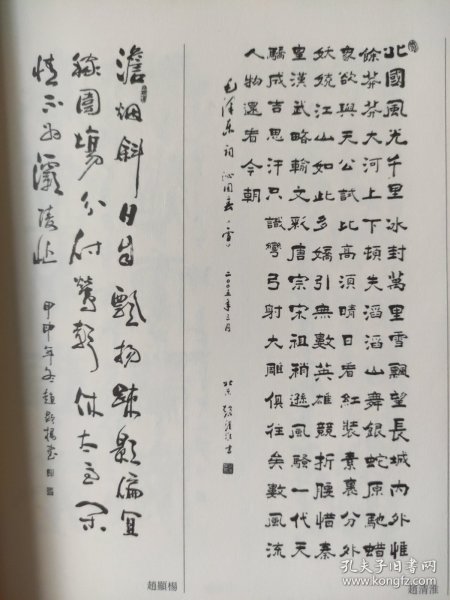 北國風光千里冰封萬里雪飄望長城內外惟
餘莽莽大河上下頓失滔滔山舞銀蛇原馳蠟
象欲與天公試比高須晴日看紅裝素裹分外
妖嬈江山如此多嬌引無數英雄競折腰惜秦
皇漢武略輸文彩唐宗宋祖稍遜風騷一代天
驕成吉思汗只識彎弓射大雕俱往矣數風流
人物還看今朝
毛澤東詞沁園春雪 二〇〇五年三月 北京
趙清淮
澹烟斜日自飄揚疎影偏宜
圃塲分付鶯聲休太閑
情不為灞陵忙
甲申年冬趙顯楊書
趙顯楊
孔夫子旧书网